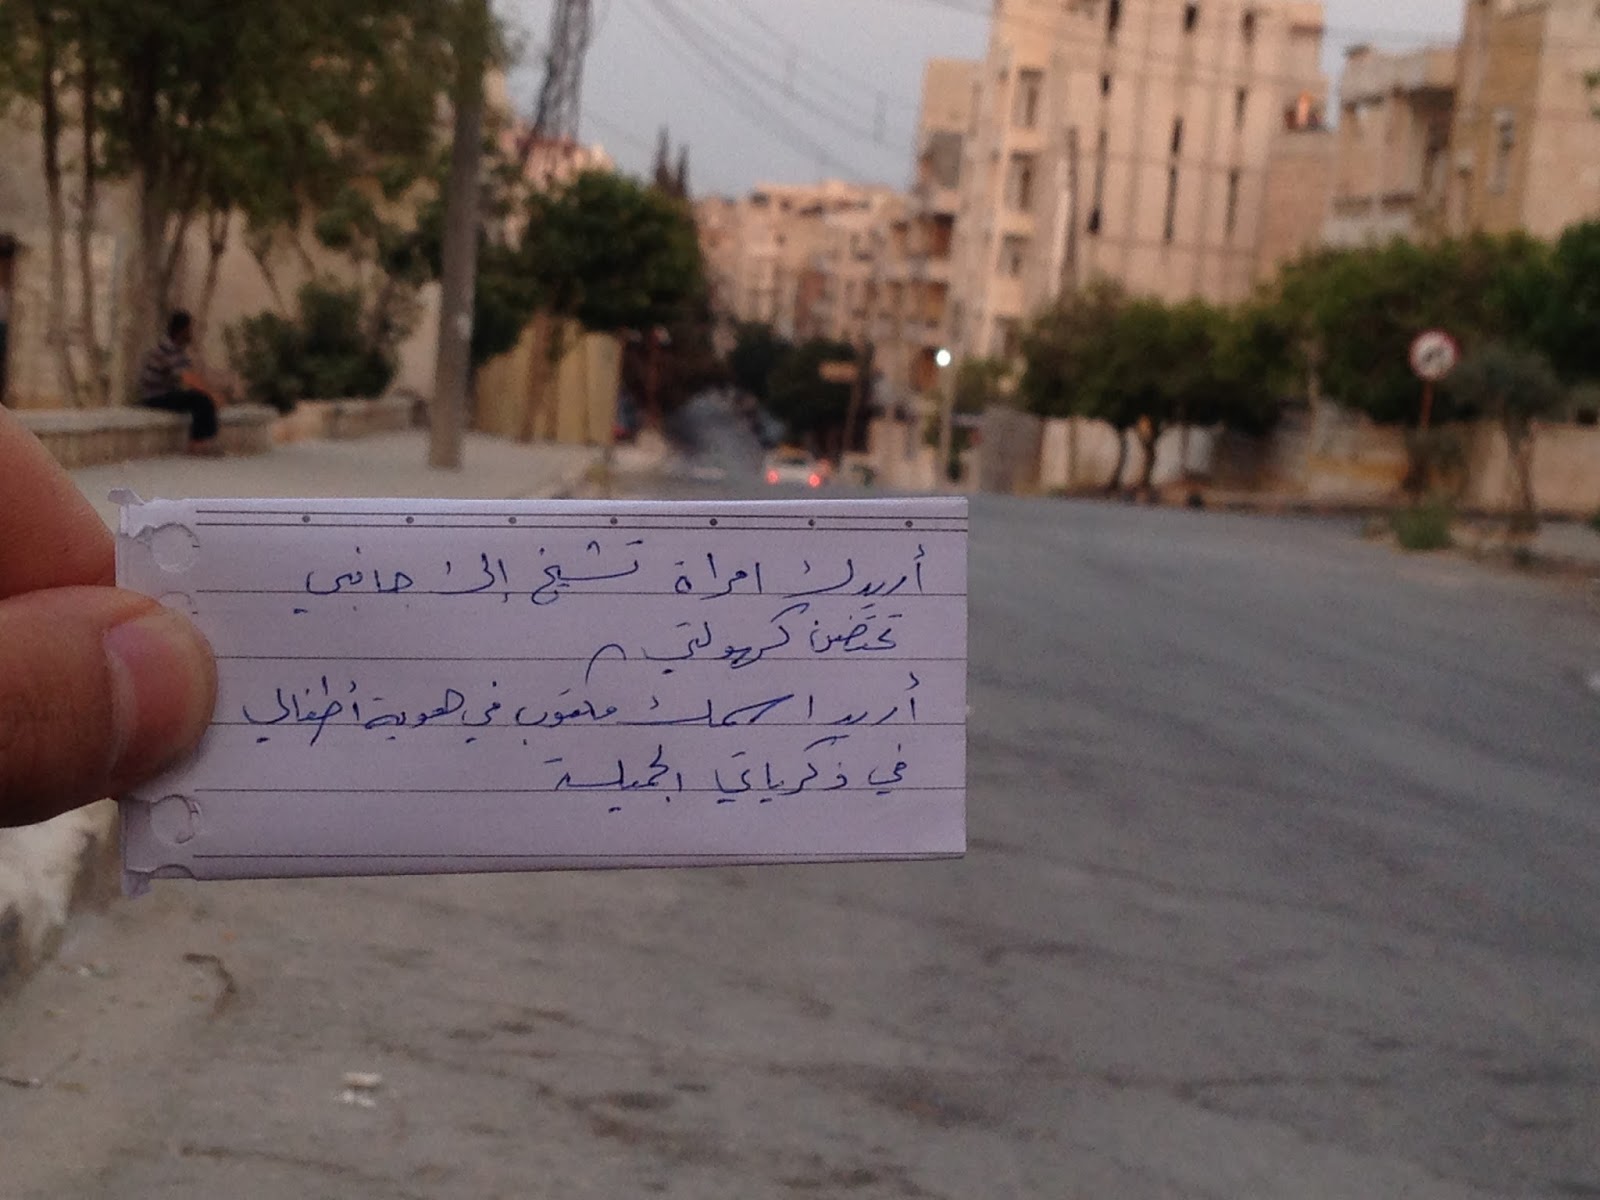 أريدك امرأة تشيخ إلى جانبي
تحتضن كهولتي
أريد اسمك مكتوب في هوية أطفالي
في ذكرياتي الجميلة